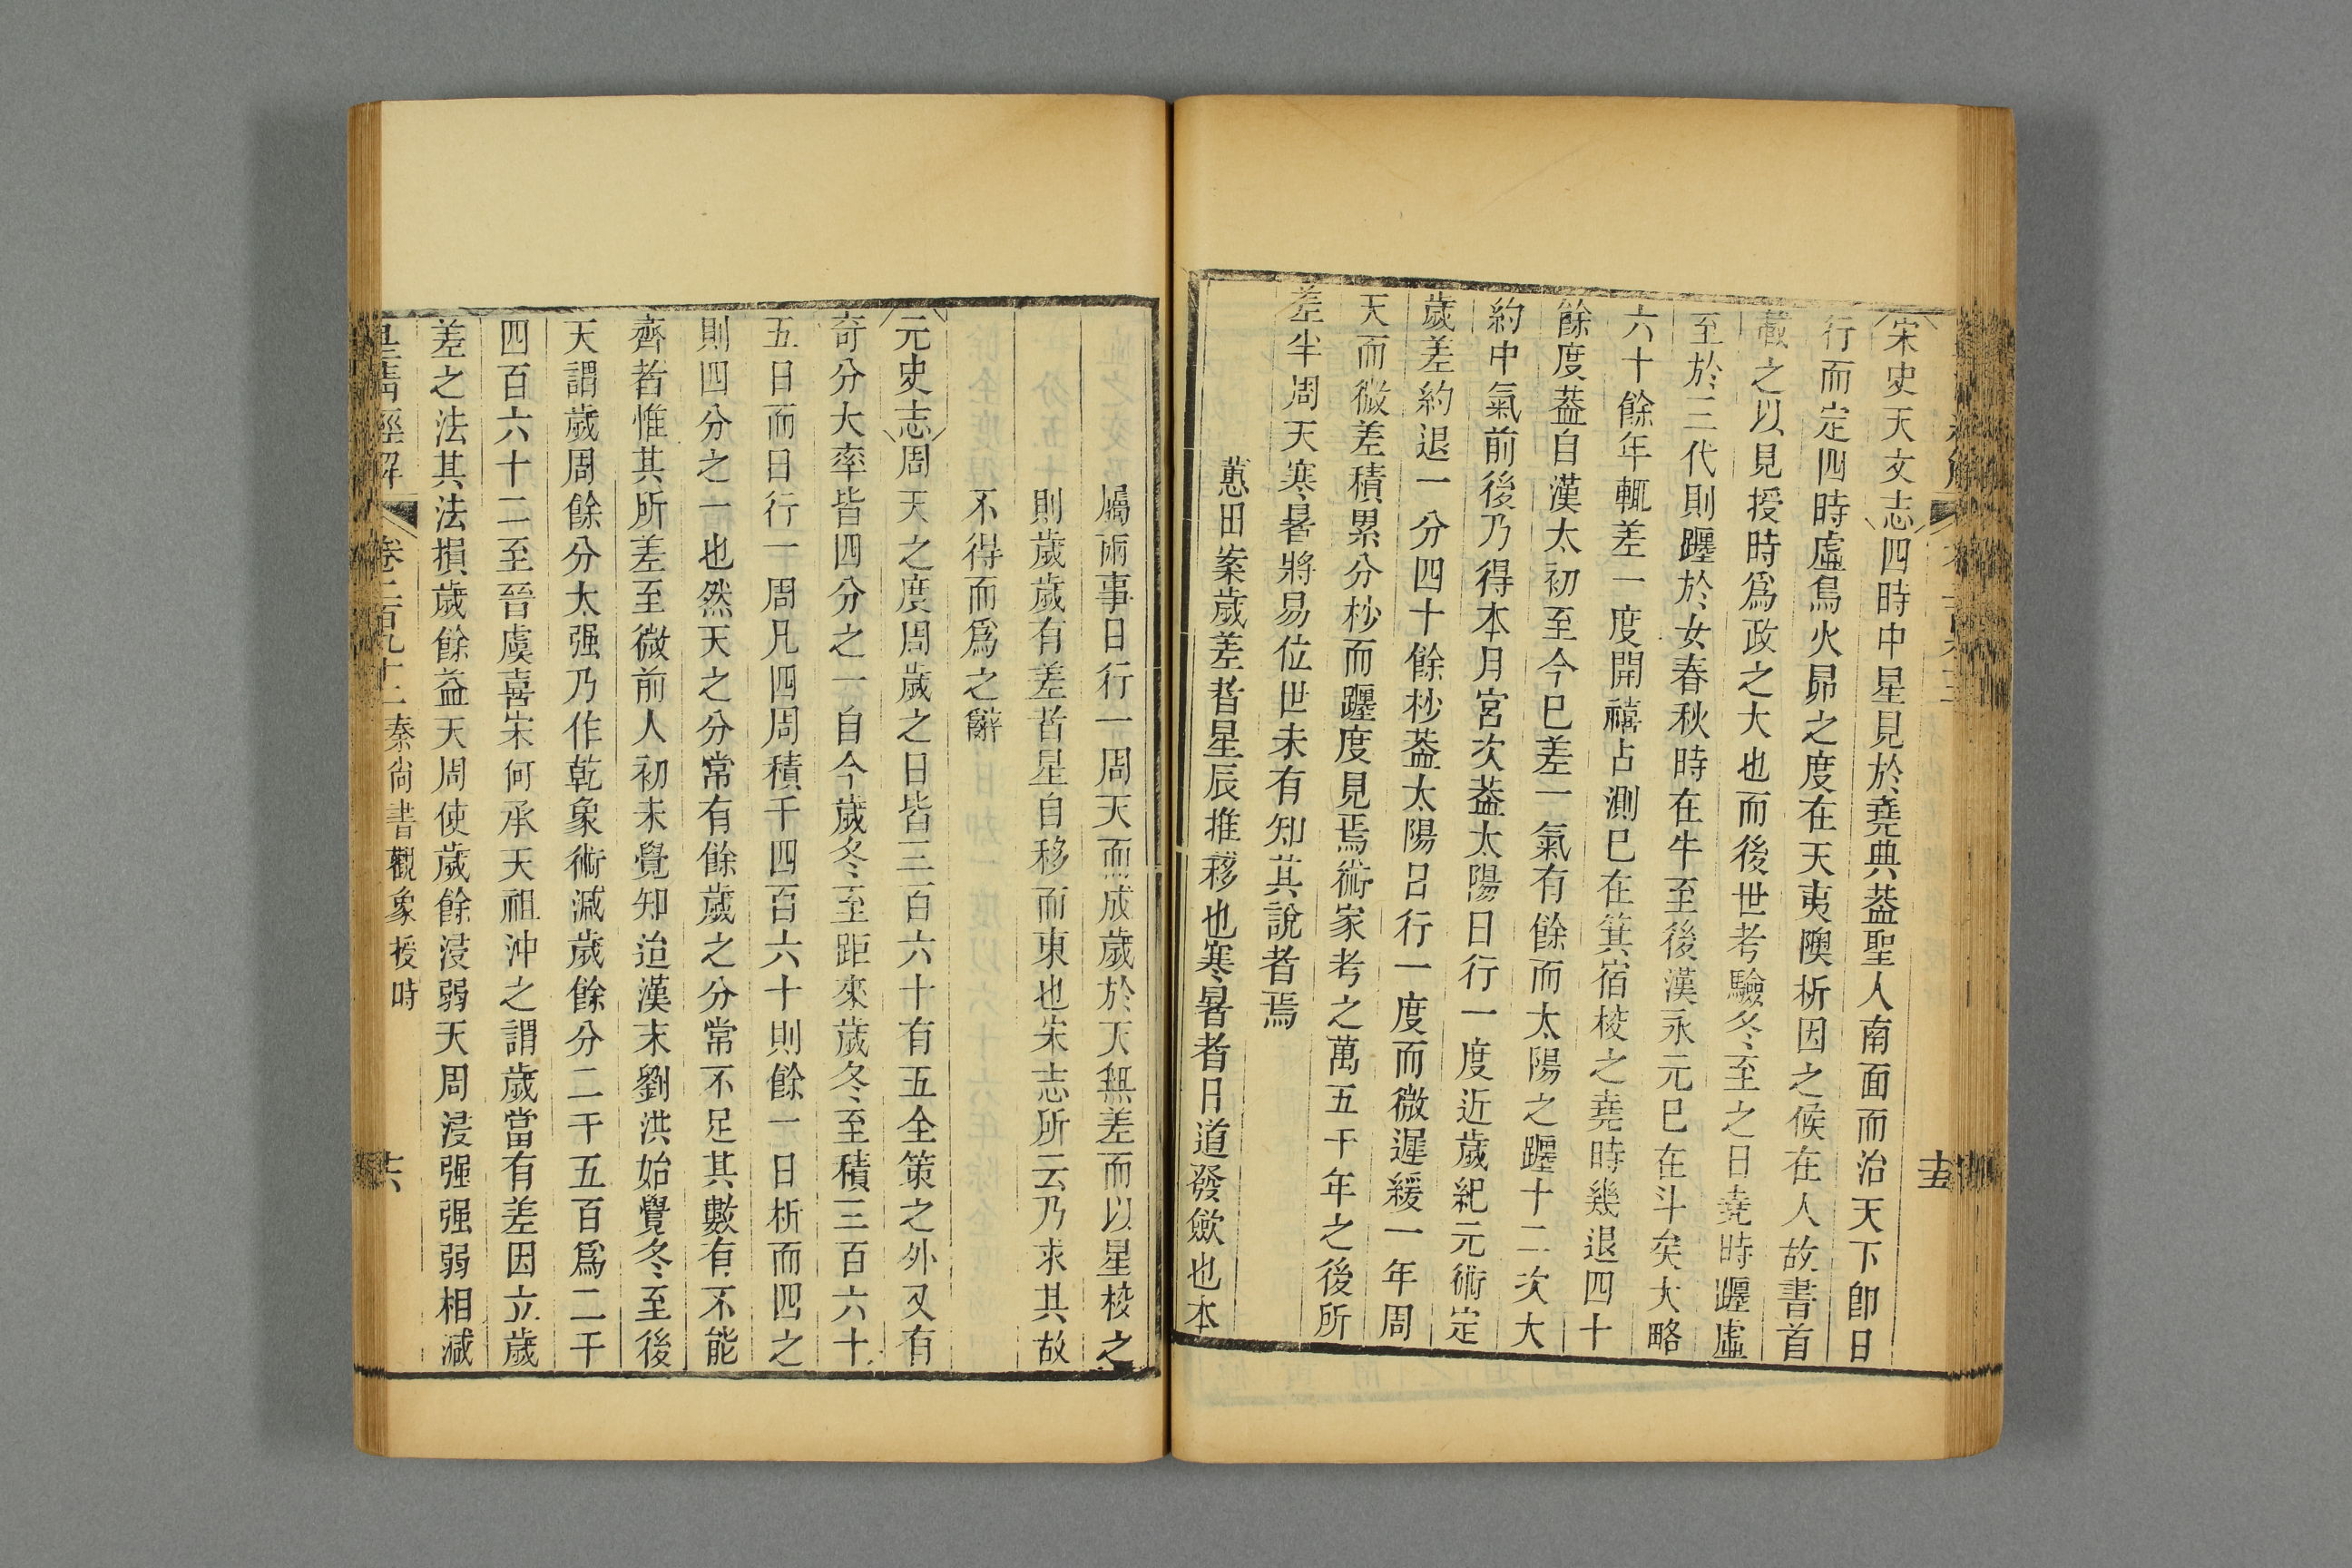 宋史天文志四時中星見於堯典葢聖人南面而治天下卽日
行而定四時虛鳥火昴之度在天夷隩析因之候在人故書首
載之以見授時爲政之大也而後世考驗冬至之日堯時躔虛
至於三代則躔於女春秋時在牛至後漢永元已在斗矣大略
六十餘年輒差一度開禧占測已在箕宿校之堯時幾退四十
餘度葢自漢太初至今已差一氣有餘而太陽之躔十二次大
約中氣前後乃得本月宮次葢太陽日行一度近歲紀元術定
歲差約退一分四十餘杪葢太陽日行一度而微遲緩一年周
天而微差積累分杪而躔度見焉術家考之萬五千年之後所
差半周天寒暑將易位世未有知其說者焉
蕙田案歲差者星辰推移也寒暑者日道發歛也本
十五
屬兩事日行一周天而成歲於天無差而以星校之
則歲歲有差者星自移而東也宋志所云乃求其故
不得而爲之辭
元史志周天之度周歲之日皆三百六十有五全策之外又有
奇分大率皆四分之一自今歲冬至距來歲冬至積三百六十
五日而日行一周凡四周積千四百六十則餘一日析而四之
則四分之一也然天之分常有餘歲之分常不足其數有不能
齊者惟其所差至微前人初未覺知迨漢末劉洪始覺冬至後
天謂歲周餘分太强乃作乾象術減歲餘分二千五百爲二千
四百六十二至晉虞喜宋何承天祖沖之謂歲當有差因立歲
差之法其法損歲餘益天周使歲餘浸弱天周浸强强弱相減
皇淸經解 卷二百九十二 秦尚書觀象授時 十六